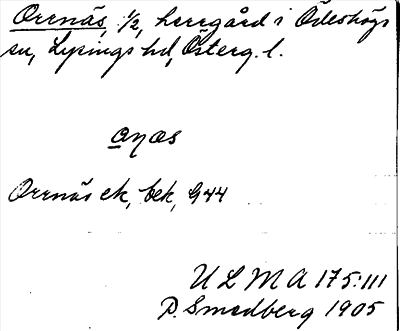 Orrnäs, 1/2, herrgård i Ödeshögs
sn, Lysings hd, Österg. l.
Orrnäs ek, bek, G44
U L M A 175:111
P. Smedberg 1905